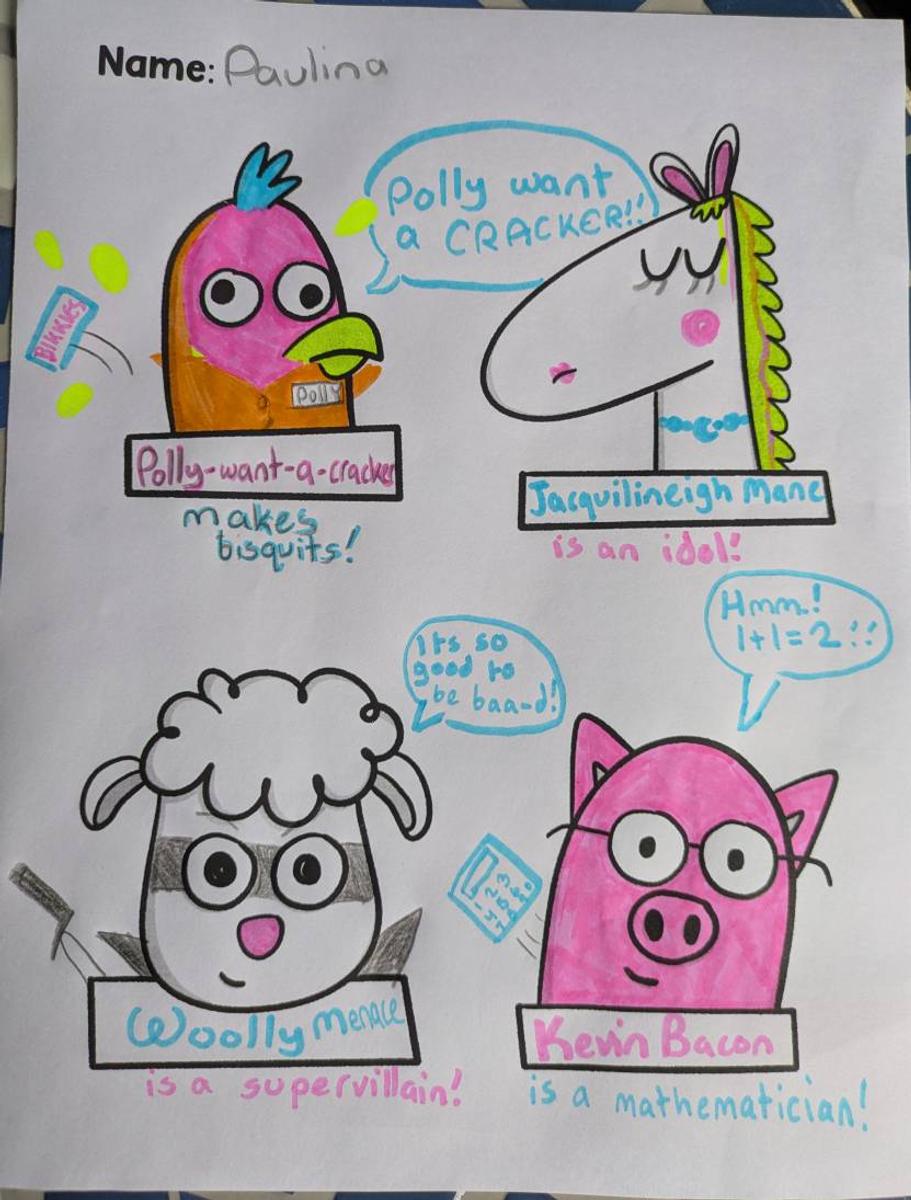 Name: Paulina
Polly want
a CRACKER!!
BIKKIES
Polly
Polly-want-a-cracker
makes
bisquits!
Jacquilineigh Mane
is an idol!
Its so
good to
be baa-d!
Hmm!
1+1=2!!
Woolly Menace
is a supervillain!
Kevin Bacon
is a mathematician!